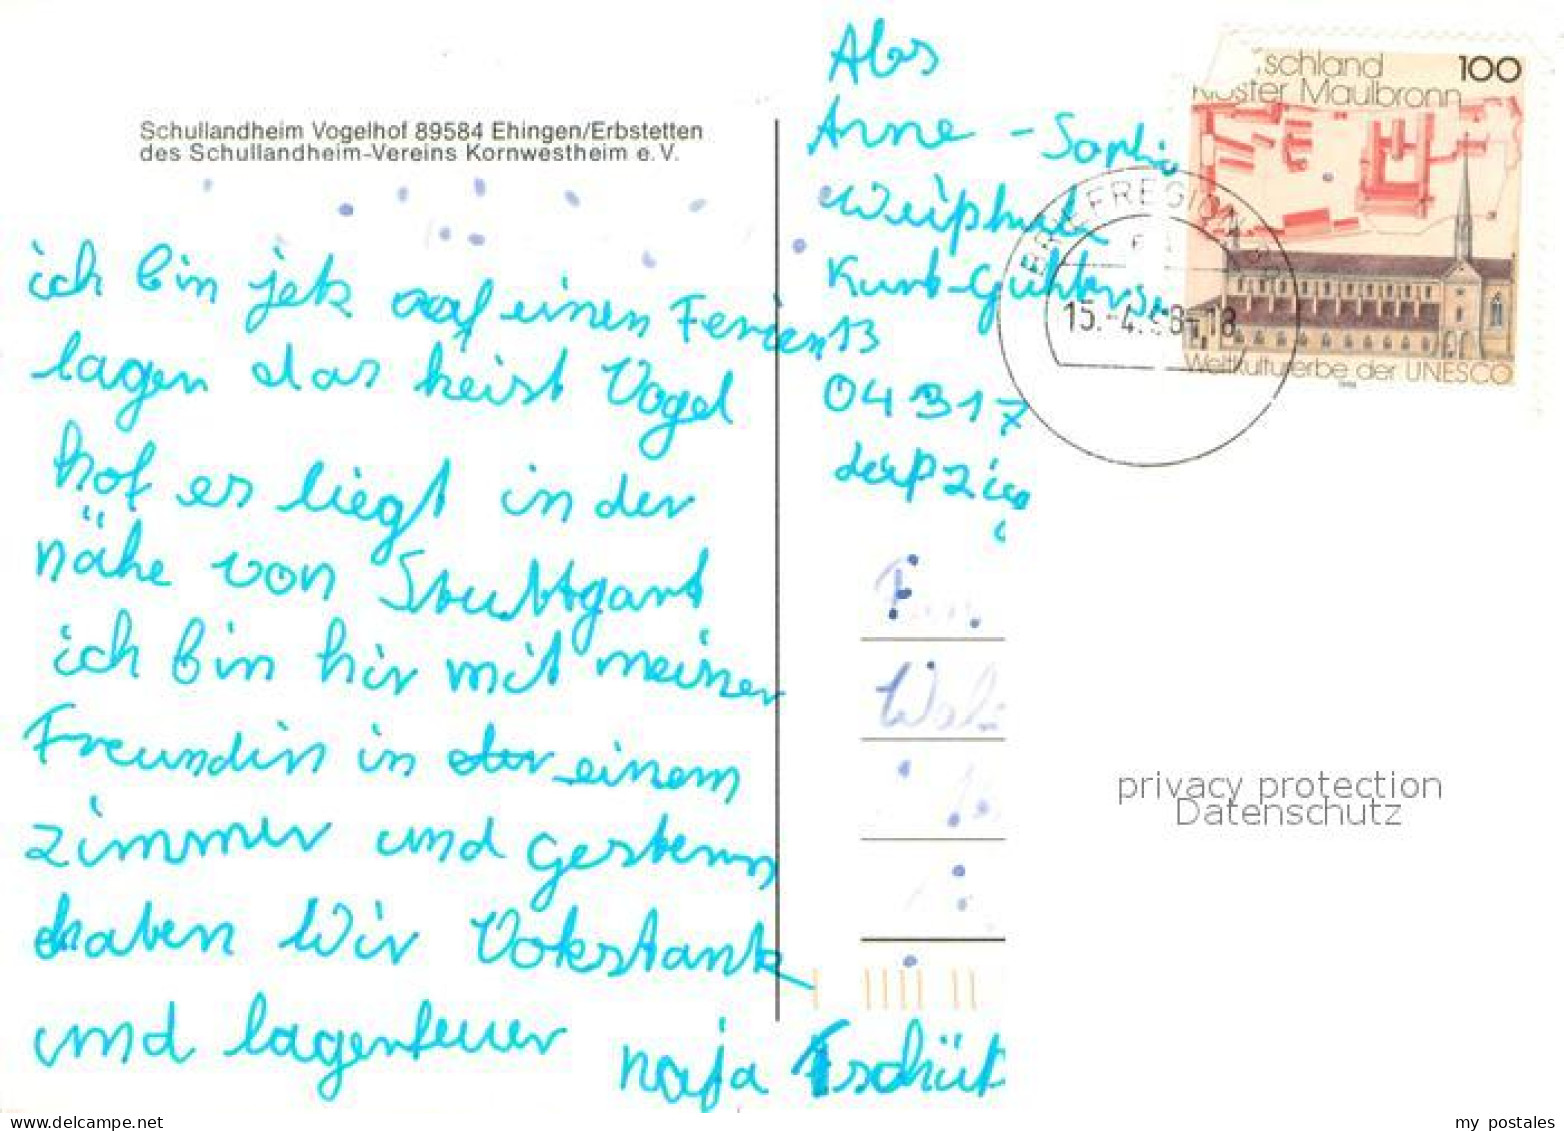 Schullandheim Vogelhof 89584 Ehingen/Erbstetten
des Schullandheim-Vereins Kornwestheim e.V.
ich bin jetz auf einen Ferien
lagen das heist Vogel
hof es liegt in der
nähe von Stuttgart
ich bin hir mit meiner
Freundin in der einem
zimmer und gestern
haben Wir Vokstank
und lagerfeuer
naja Tschüß
Abs
Anne-Sophie
Kurt-Günther
13
04317
Leipzig
100
Kloster Maulbronn
Weltkulturerbe der UNESCO
1998
BRIEFREGION
15.-4.98-18
privacy protection
Datenschutz
www.delcampe.net
my_postales